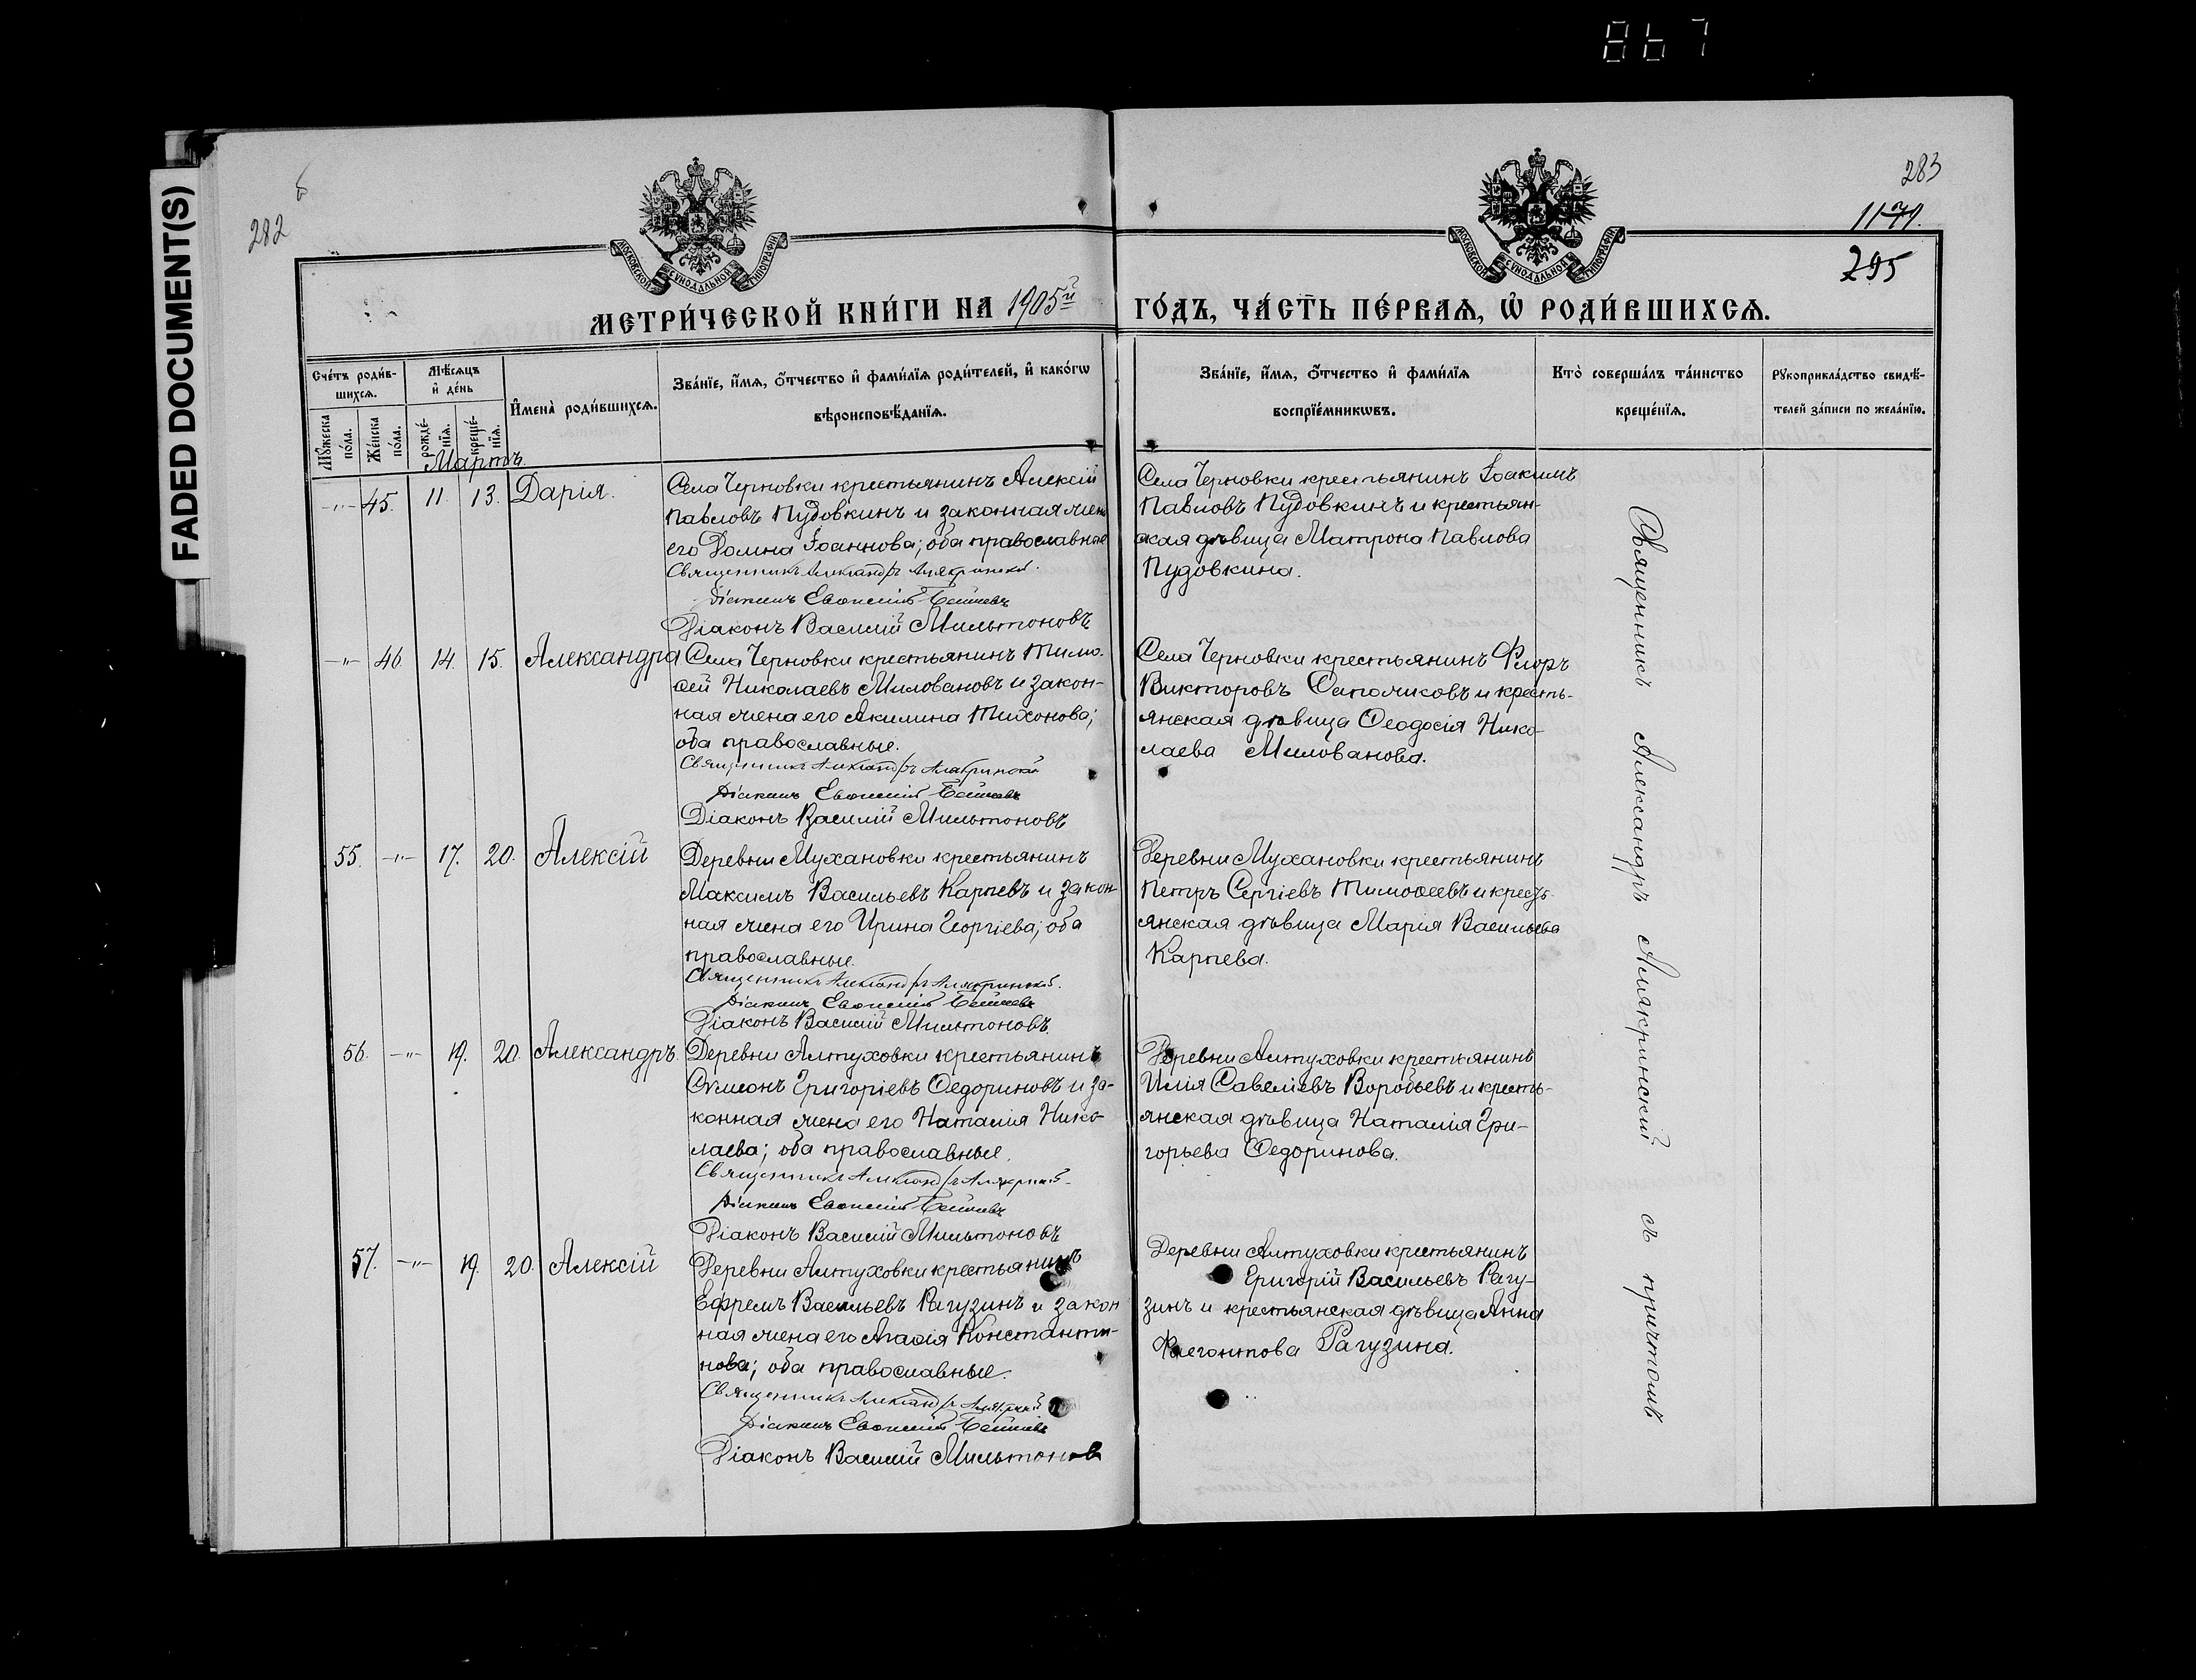 867
FADED DOCUMENT(S)
282
283
1171.
295
МОСКОВСКОЙ СѴНОДАЛЬНОЙ ТИПОГРАФІИ
МОСКОВСКОЙ СѴНОДАЛЬНОЙ ТИПОГРАФІИ
МЕТРИ́ЧЕСКОЙ КНИ́ГИ НА 1905й
ГО́ДЪ, ЧА́СТЬ ПЕ́РВАѦ, Ѽ РОДИ́ВШИХСѦ.
Сче́тъ роди́в-
шихсѧ.
Мꙋ́жеска по́ла.
Же́нска по́ла.
Мѣ́сѧцъ и҆ де́нь
рожде́-
нїѧ.
креще́-
нїѧ.
И҆мена̀ роди́вшихсѧ.
Зва́нїе, и҆́мѧ, ѻ҆́тчество и҆ фами́лїѧ роди́телей, и҆ како́гѡ
вѣроисповѣ́данїѧ.
Зва́нїе, и҆́мѧ, ѻ҆́тчество и҆ фами́лїѧ
воспрїе́мникѡвъ.
Кто̀ соверша́лъ та́инство
креще́нїѧ.
Рꙋкоприкла́дство свидѣ́-
телей за́писи по жела́нїю.
Мартъ.
-"- 45. 11. 13. Дарія.
Села Черновки крестьянинъ Алексій
Павловъ Пудовкинъ и законная жена
его Домна Іоаннова; оба православные
Священникъ Александръ Алякринскій.
Діаконъ
Діаконъ Василій Мильтоновъ
Села Черновки крестьянинъ Іоакимъ
Павловъ Пудовкинъ и крестьян-
ская дѣвица Матрона Павлова
Пудовкина.
-"- 46 14. 15. Александра
Села Черновки крестьянинъ Тимо-
ѳей Николаевъ Миловановъ и закон-
ная жена его Акилина Тихонова;
оба православные.
Священникъ Александръ Алякринскій
Діаконъ
Діаконъ Василій Мильтоновъ
Села Черновки крестьянинъ Флоръ
Викторовъ Сапожниковъ и кресть-
янская дѣвица Ѳеодосія Нико-
лаева Милованова.
55. -"- 17. 20. Алексій
Деревни Мухановки крестьянинъ
Максимъ Васильевъ Карпевъ и закон-
ная жена его Ирина Георгіева; оба
православные.
Священникъ Александръ Алякринскій.
Діаконъ
Діаконъ Василій Мильтоновъ.
Деревни Мухановки крестьянинъ
Петръ Сергіевъ Тимоѳеевъ и кресть-
янская дѣвица Марія Васильева
Карпева.
56. -"- 19. 20. Александръ.
Деревни Алтуховки крестьянинъ
Сѵмеонъ Григоріевъ Ѳедориновъ и за-
конная жена его Наталія Нико-
лаева; оба православные.
Священникъ Александръ Алякринскій.
Діаконъ
Діаконъ Василій Мильтоновъ
Деревни Алтуховки крестьянинъ
Илія Савеліевъ Воробьевъ и кресть-
янская дѣвица Наталія Гри-
горьева Ѳедоринова.
57. -"- 19. 20. Алексій
Деревни Алтуховки крестьянинъ
Ефремъ Васильевъ Рагузинъ и закон
ная жена его Агаѳія Константи-
нова; оба православные.
Священникъ Александръ Алякринскій
Діаконъ
Діаконъ Василій Мильтонов
Деревни Алтуховки крестьянинъ
Григорій Васильевъ Рагу-
зинъ и крестьянская дѣвица Анна
Флегонтова Рагузина.
Священникъ Александръ Алякринскій съ причтомъ